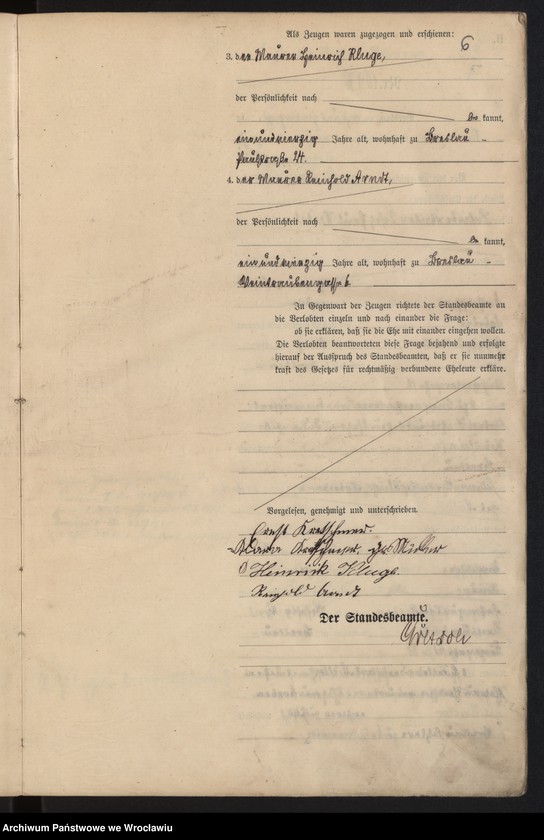 Als Zeugen waren zugezogen und erschienen:
6
3. der Maurer Heinrich Kluge,
der Persönlichkeit nach
be kannt,
einundvierzig Jahre alt, wohnhaft zu Breslau
Paulstraße 24.
4. der Maurer Reinhold Arndt,
der Persönlichkeit nach
be kannt,
einundvierzig Jahre alt, wohnhaft zu Breslau
Weintraubengasse 6
In Gegenwart der Zeugen richtete der Standesbeamte an
die Verlobten einzeln und nach einander die Frage:
ob sie erklären, daß sie die Ehe mit einander eingehen wollen.
Die Verlobten beantworteten diese Frage bejahend und erfolgte
hierauf der Ausspruch des Standesbeamten, daß er sie nunmehr
kraft des Gesetzes für rechtmäßig verbundene Eheleute erkläre.
Vorgelesen, genehmigt und unterschrieben.
Ernst Kretschmer.
Klara Kretschmer, geb.
Heinrich Kluge.
Reinhold Arndt
Der Standesbeamte.
Archiwum Państwowe we Wrocławiu